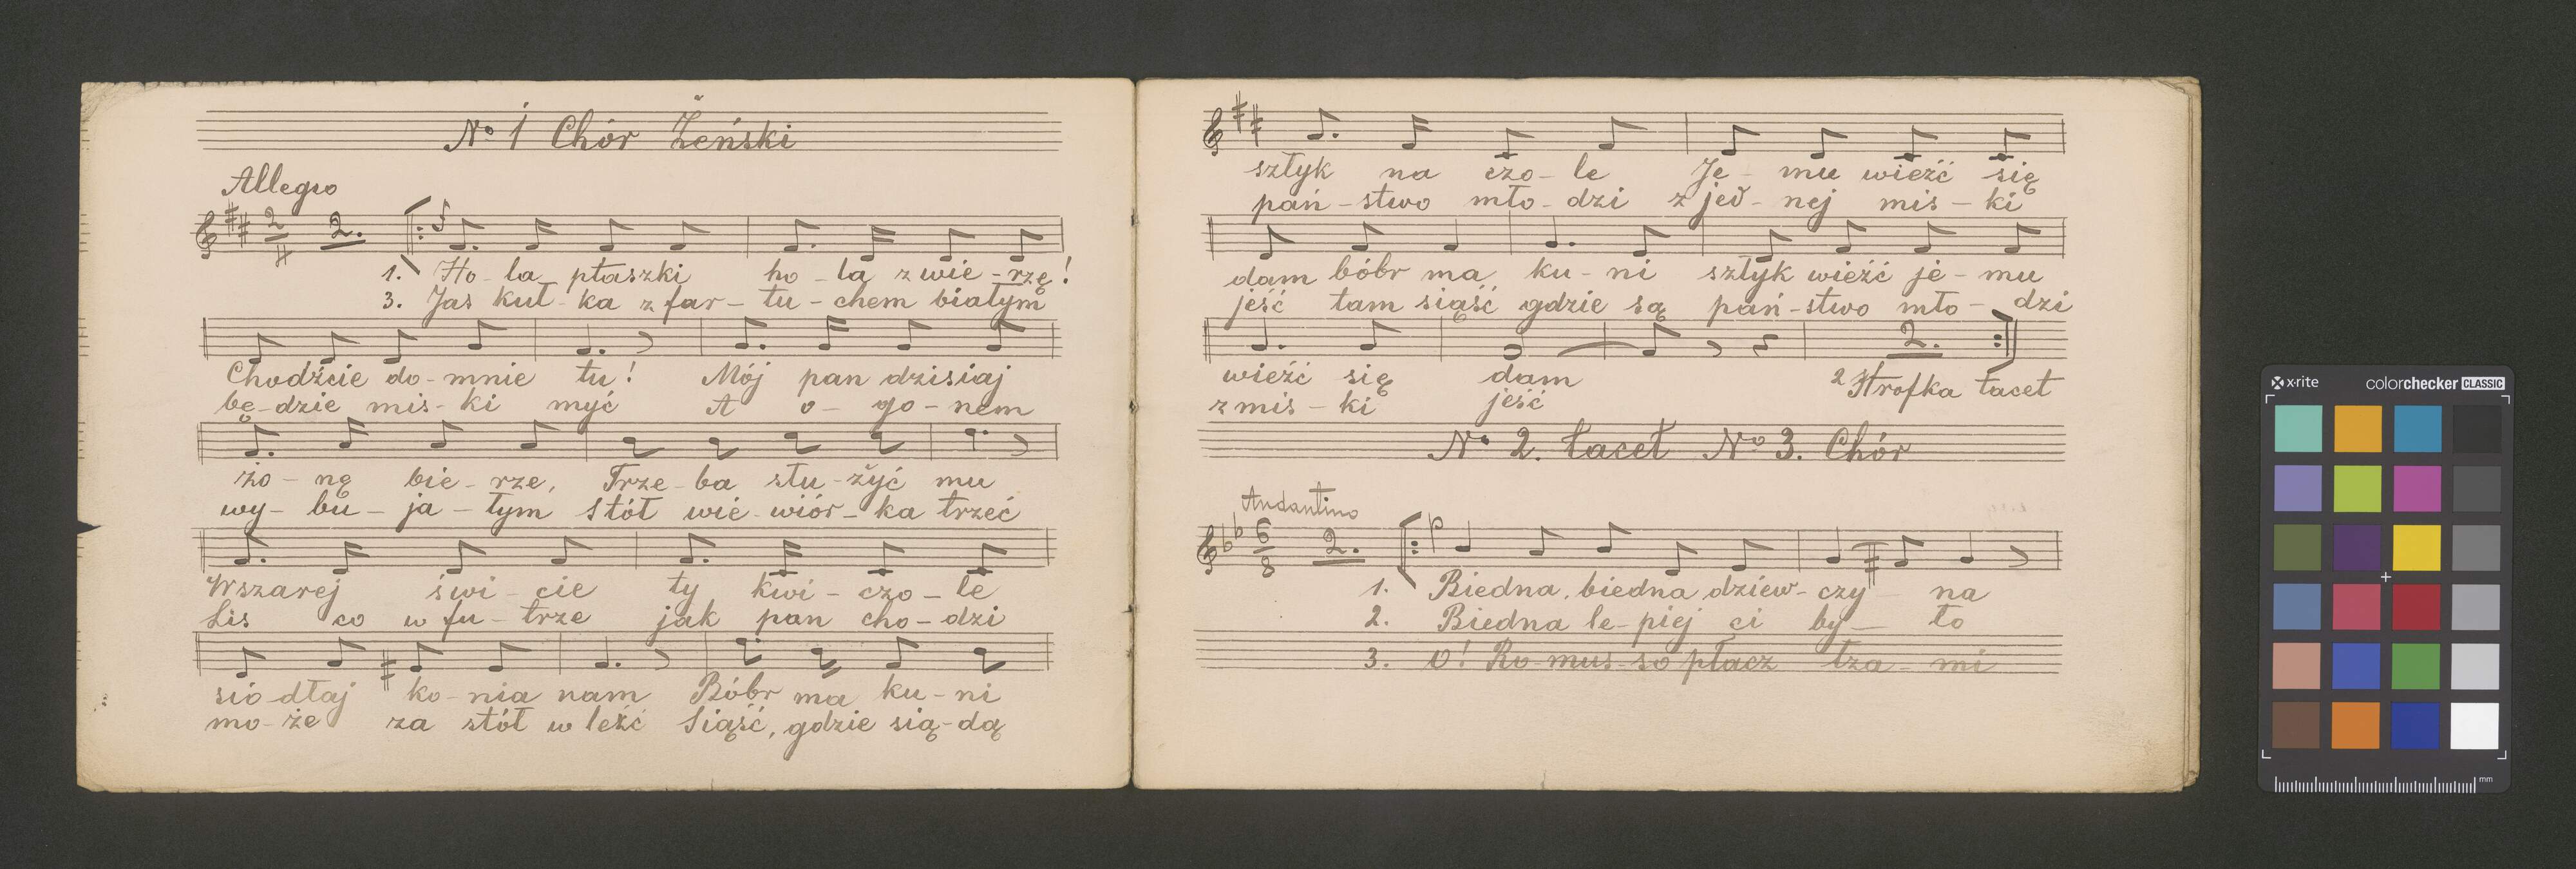 No 1 Chór Żeński
Allegro
2 2.
1. Ho - la ptaszki ho - la zwie - rzę!
3. Jas kuł - ka z far - tu - chem białym
Chodźcie do - mnie tu! Mój pan dzisiaj
bę - dzie mis - ki myć A o - go - nem
żo - nę bie - rze, Trze - ba słu - żyć mu
wy - bu - ja - łym Stół wie - wiór - ka trzeć
Wszarej świ - cie ty kwi - czo - le
Lis co w fu - trze jak pan cho - dzi
sio - dłaj ko - nia nam Bóbr ma ku - ni
mo - że za stół w leźć Siąść, gdzie sią - dą
sztyk na czo - le Je - mu wieźć się
pań - stwo mło - dzi z jed - nej mis - ki
dam bóbr ma ku - ni sztyk wieźć je - mu
jeść tam siąść gdzie są pań - stwo mło - dzi
2.
wieźć się dam 2 Strofka tacet
z mis - ki jeść
No 2. tacet No 3. Chór
Andantino
6/8 2. p
1. Biedna, biedna dziew - czy - na
2. Biedna le - piej ci by - ło
3. O! Ro - mus - so płacz łza - mi
x-rite colorchecker CLASSIC
mm